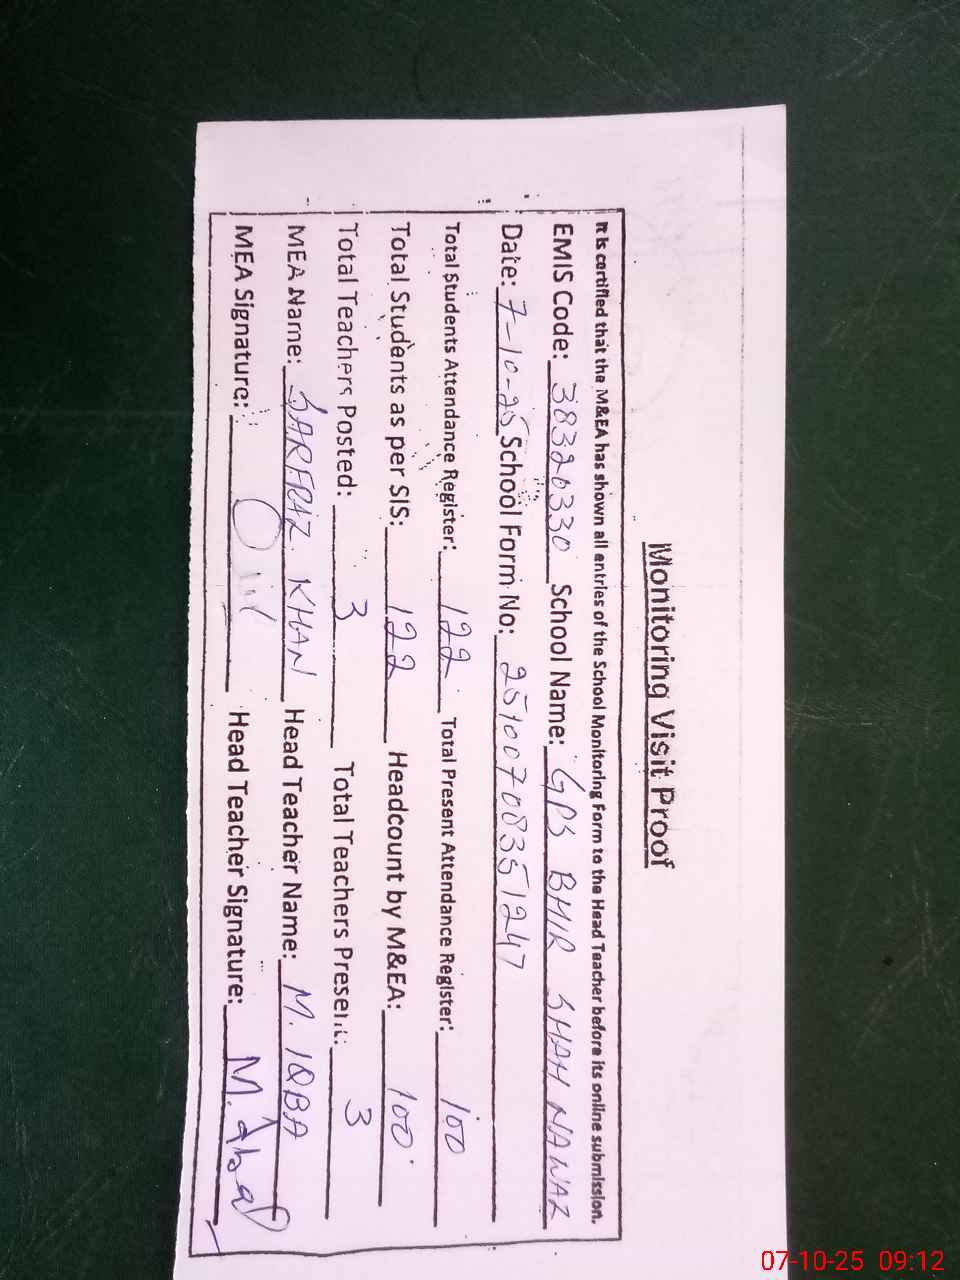 Monitoring Visit Proof
It is certified that the M&EA has shown all entries of the School Monitoring Form to the Head Teacher before its online submission.
EMIS Code: 38320330 School Name: GPS BHIR SHAH NAWAZ
Date: 7-10-25 School Form No: 25100708351247
Total Students Attendance Register: 122 Total Present Attendance Register: 100
Total Students as per SIS: 122 Headcount by M&EA: 100
Total Teachers Posted: 3 Total Teachers Present: 3
MEA Name: SARFRAZ KHAN Head Teacher Name: M. IQBA
MEA Signature: Head Teacher Signature: M.
07-10-25 09:12